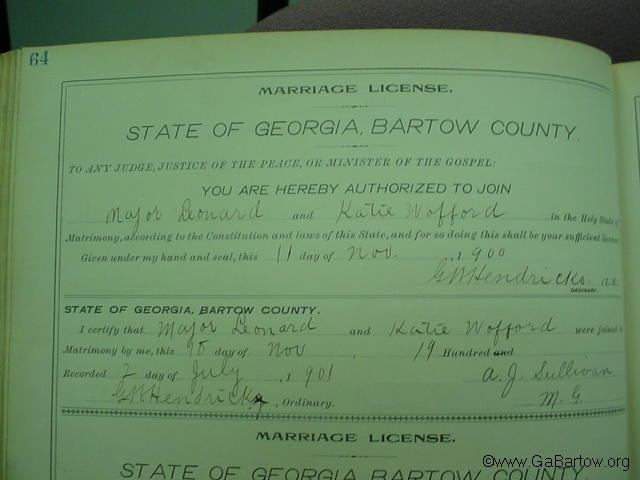 64
MARRIAGE LICENSE.
STATE OF GEORGIA, BARTOW COUNTY.
TO ANY JUDGE, JUSTICE OF THE PEACE, OR MINISTER OF THE GOSPEL:
YOU ARE HEREBY AUTHORIZED TO JOIN
Major Leonard and Katie Wofford in the Holy State of
Matrimony, according to the Constitution and laws of this State, and for so doing this shall be your sufficient license
Given under my hand and seal, this 11 day of Nov. , 1900
G W Hendricks.
ORDINARY.
STATE OF GEORGIA, BARTOW COUNTY.
I certify that Major Leonard and Katie Wofford were joined in
Matrimony by me, this day of Nov , 19 Hundred and
Recorded 2 day of July , 1901 A. J. Sullivan
G W Hendricks , Ordinary. M. G.
MARRIAGE LICENSE.
STATE OF GEORGIA, BARTOW COUNTY.
©www.GaBartow.org